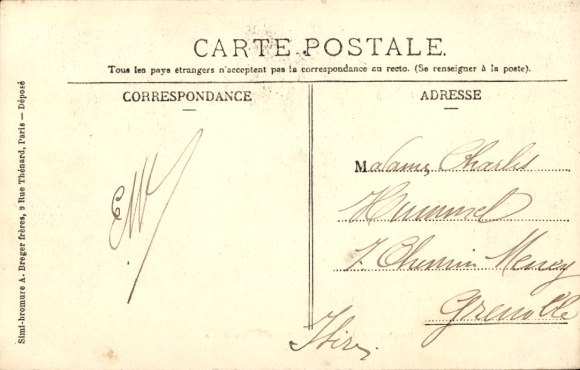 CARTE POSTALE.
Tous les pays étrangers n'acceptent pas la correspondance au recto. (Se renseigner à la poste).
CORRESPONDANCE
ADRESSE
Madame Charles
Hummel
7. Chemin
Grenoble
Isère
Simi-bromure A. Breger frères, 9 Rue Thénard, Paris — Déposé